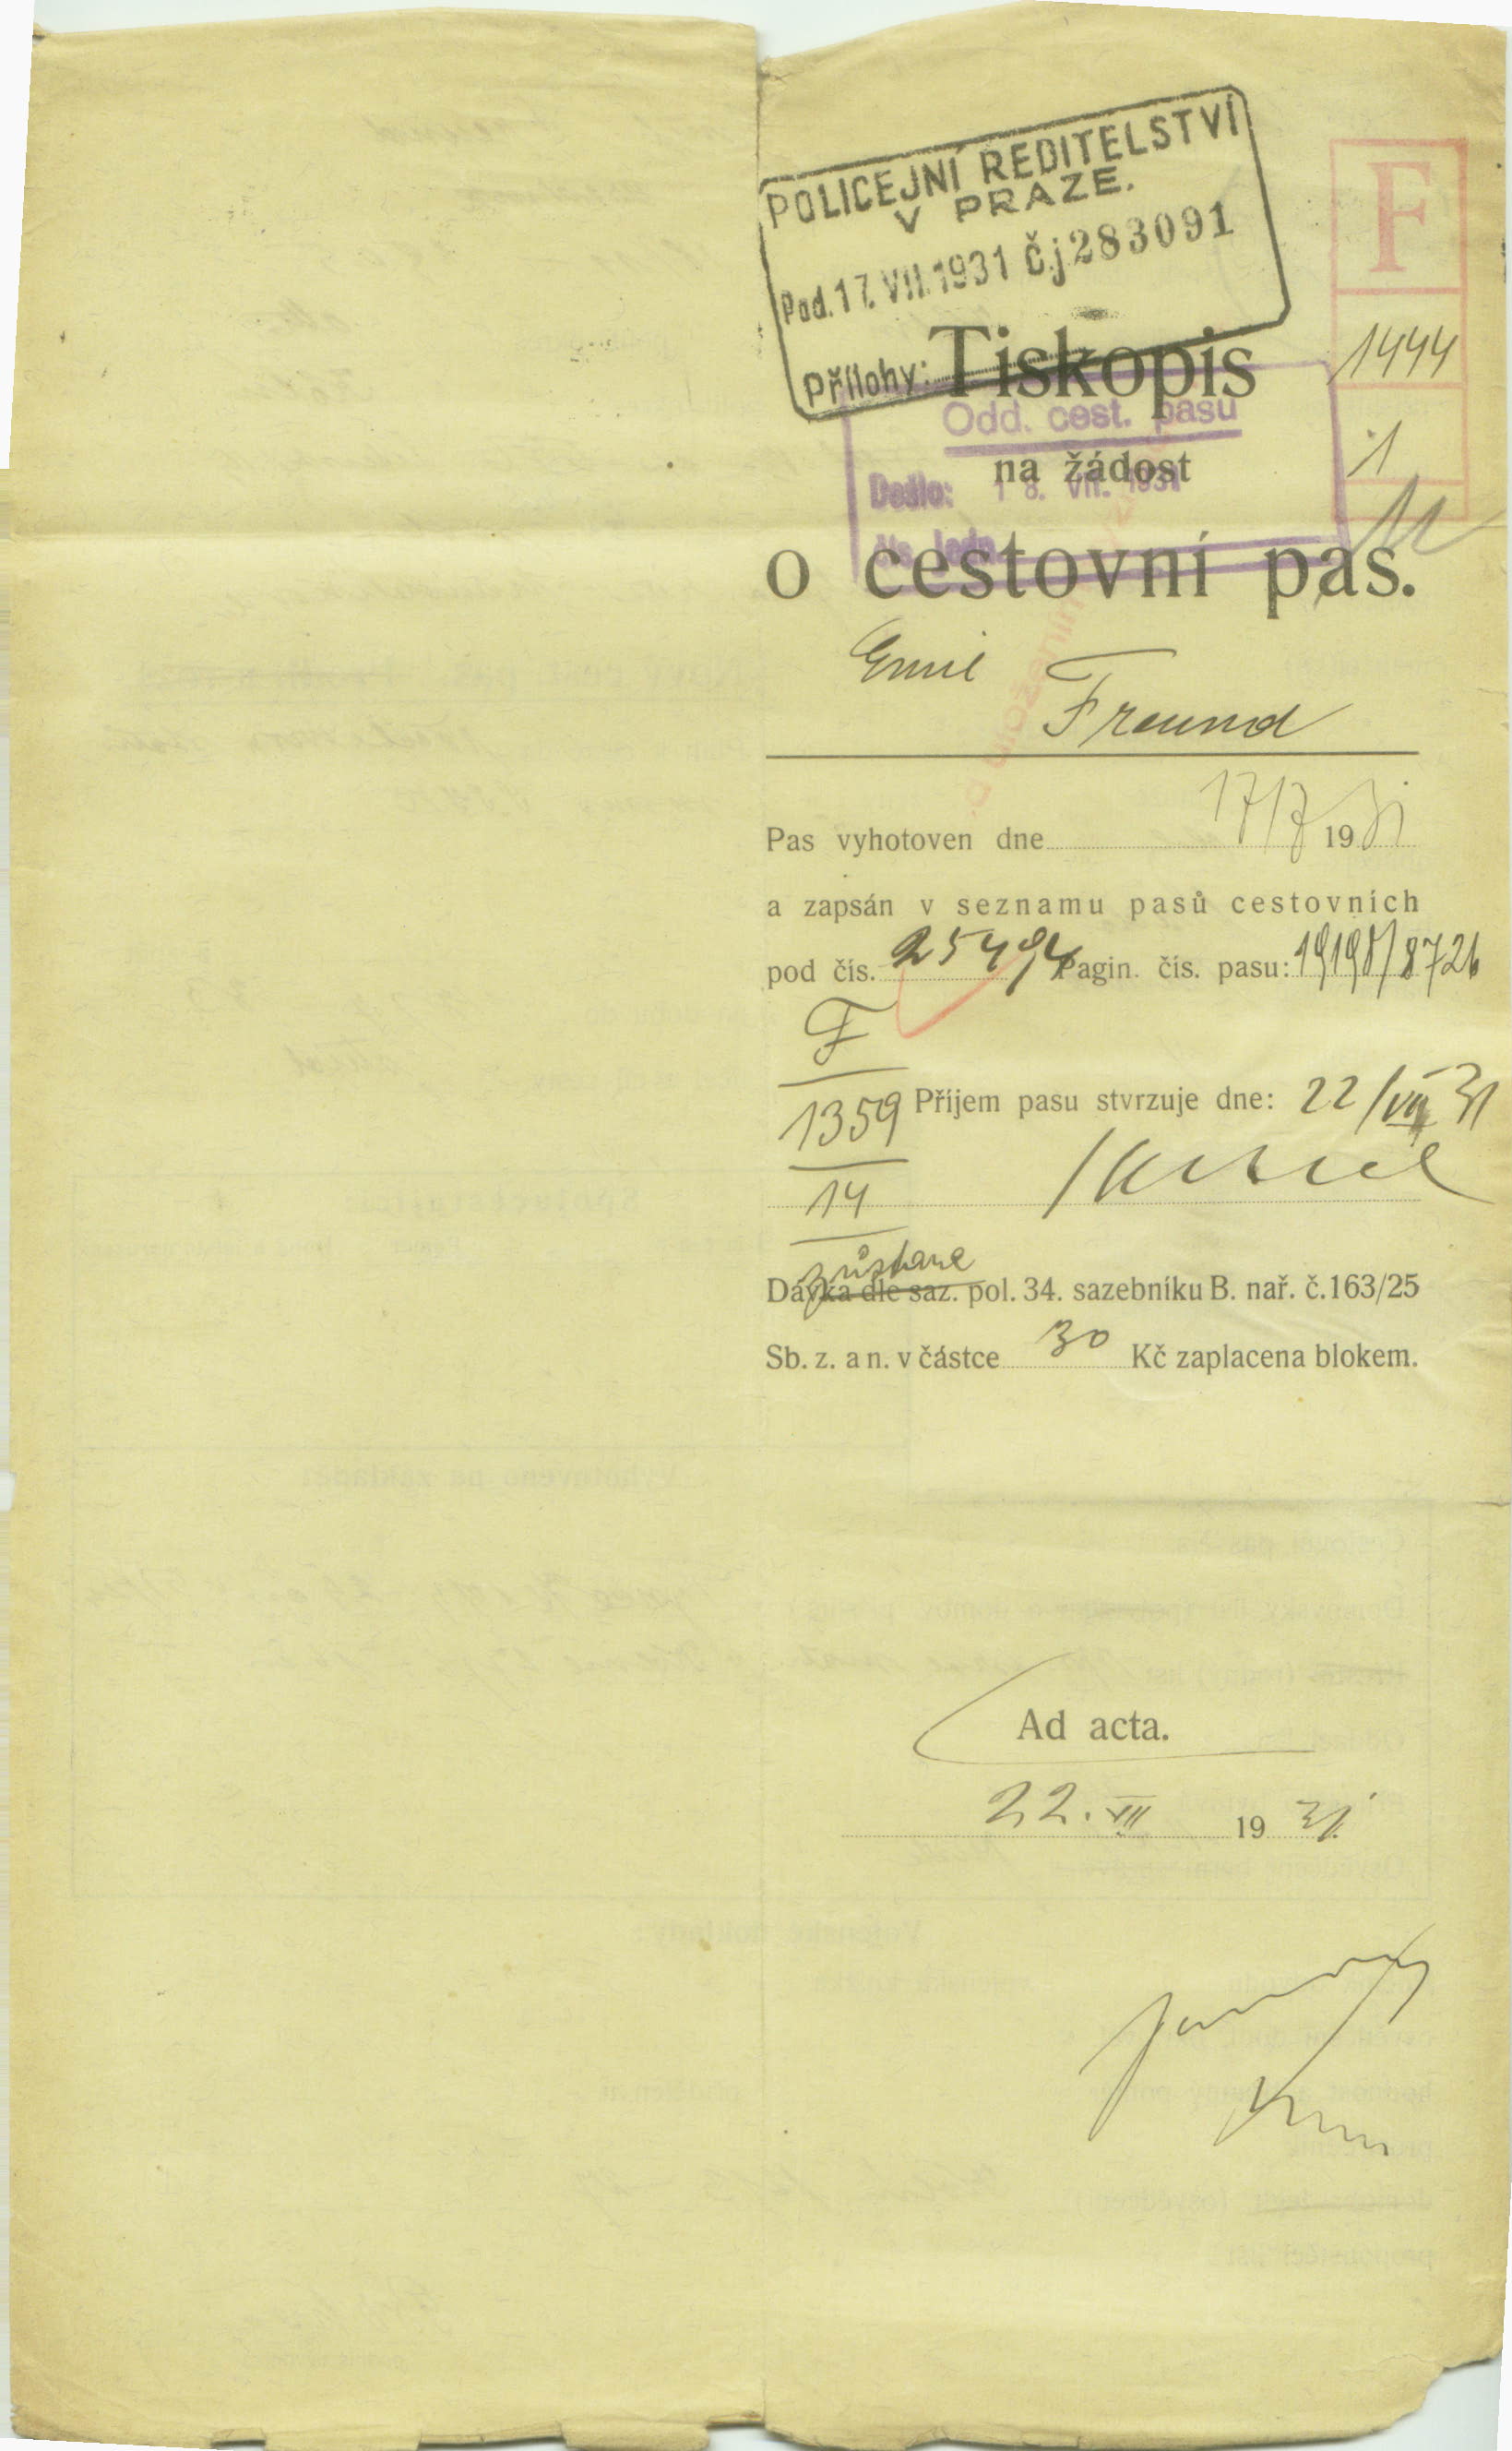 POLICEJNÍ ŘEDITELSTVÍ
V PRAZE.
Pod. 17. VII. 1931 Čj 283091
Přílohy:
F
1444
1
Tiskopis
Odd. cest. pasů
na žádost
Došlo: 18. VII. 1931
o cestovní pas.
Emil
Freund
Pas vyhotoven dne 17/7 1931
a zapsán v seznamu pasů cestovních
pod čís. 25494 Pagin. čís. pasu: 19198/8726
F
1359
14
Příjem pasu stvrzuje dne: 22/VII 31
zůstane
Dávka dle saz. pol. 34. sazebníku B. nař. č. 163/25
Sb. z. a n. v částce 30 Kč zaplacena blokem.
Ad acta.
22. VII 1931